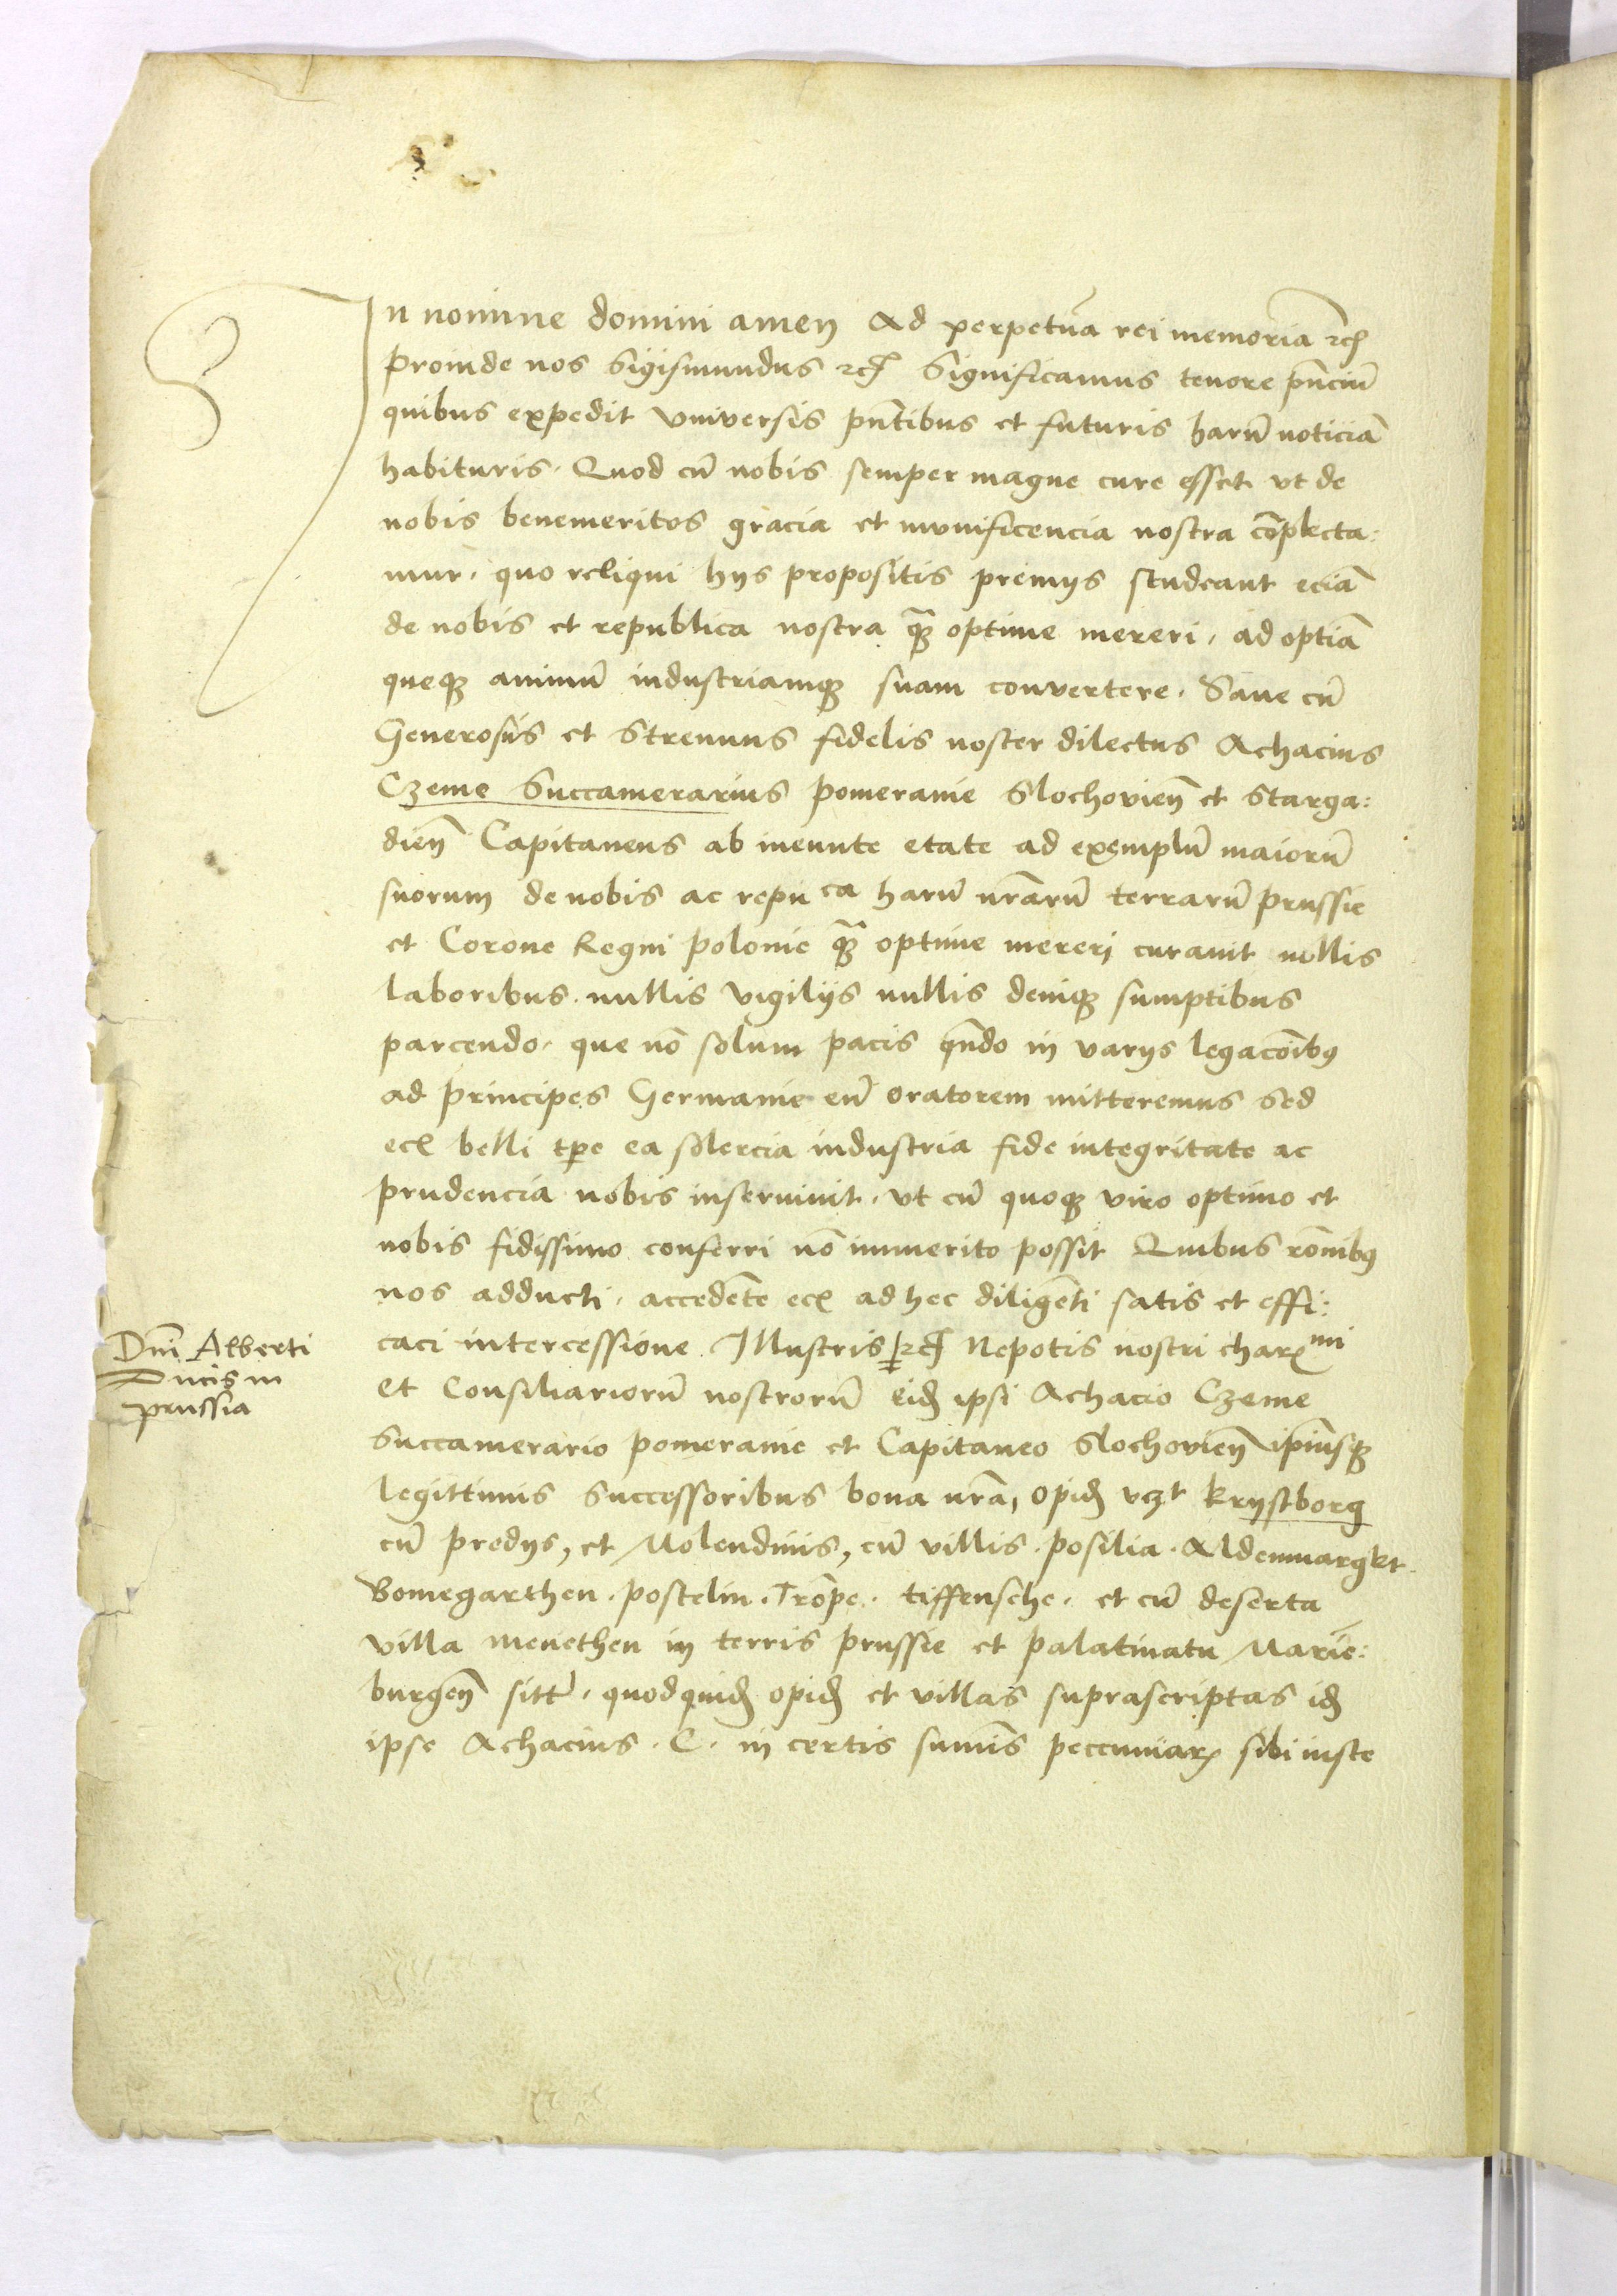 In nomine domini amen Ad perpetuā rei memoriā ꝛcꝭ
Proinde nos Sigismundus ꝛcꝭ Significamus tenore pn̄ciū
quibus expedit vniversis pn̄tibus et futuris harū noticiā
habituris. Quod cū nobis semper magne cure esset vt de
nobis benemeritos gracia et munificencia nostra cōplecta:
mur, quo reliqui hys propositis premys studeant eciā
de nobis et republica nostra qꝫ̄ optime mereri, ad optiā
queqꝫ animū industriamqꝫ suam convertere. Sane cū
Generosus et Strenuus fidelis noster dilectus Achacius
Czeme Succamerarius pomeranie Slochovien̄ et Starga:
dien̄ Capitaneus ab ineunte etate ad exemplū maiorū
suorum de nobis ac repuca harū nr̄arū terrarū prussie
et Corone Regni polonie qꝫ̄ optime mererj curavit nullis
laboribus nullis vigilijs nullis deniqꝫ sumptibus
parcendo. que nō solum pacis qn̄do in varys legacōibꝰ
ad principes Germanie eū oratorem mitteremus Sed
ecꝭ belli tꝑe ea solercia industria fide integritate ac
prudencia nobis inservivit. vt cū quoqꝫ viro optimo et
nobis fidissimo conferri nō immerito possit Quibus rōnibꝰ
nos adducti, accedēte ecꝭ ad hec diligēti satis et effi:
caci intercessione Illustris ꝛcꝭ Nepotis nostri charꝫmi
Dn̄i Alberti
Ducis in
prussia
et Consiliariorū nostrorū eidꝫ ipsi Achacio Czeme
Succamerario pomeranie et Capitaneo Slochovien̄ ipiusqꝫ
legittimis Successoribus bona nr̄a, opidꝫ vꝫt kryſtborg
cū predys, et Molendinis, cū villis. posilia. Aldenmargkt.
Bomegarthen. postelin. Trōpe. tiffensehe. et cū deserta
villa menethen in terris prussie et palatinatu Marie:
burgen̄ sitt̄. quodquidꝫ opidꝫ et villas suprascriptas idꝫ
ipse Achacius. C. in certis sumis peccuniarꝫ sibi iuste